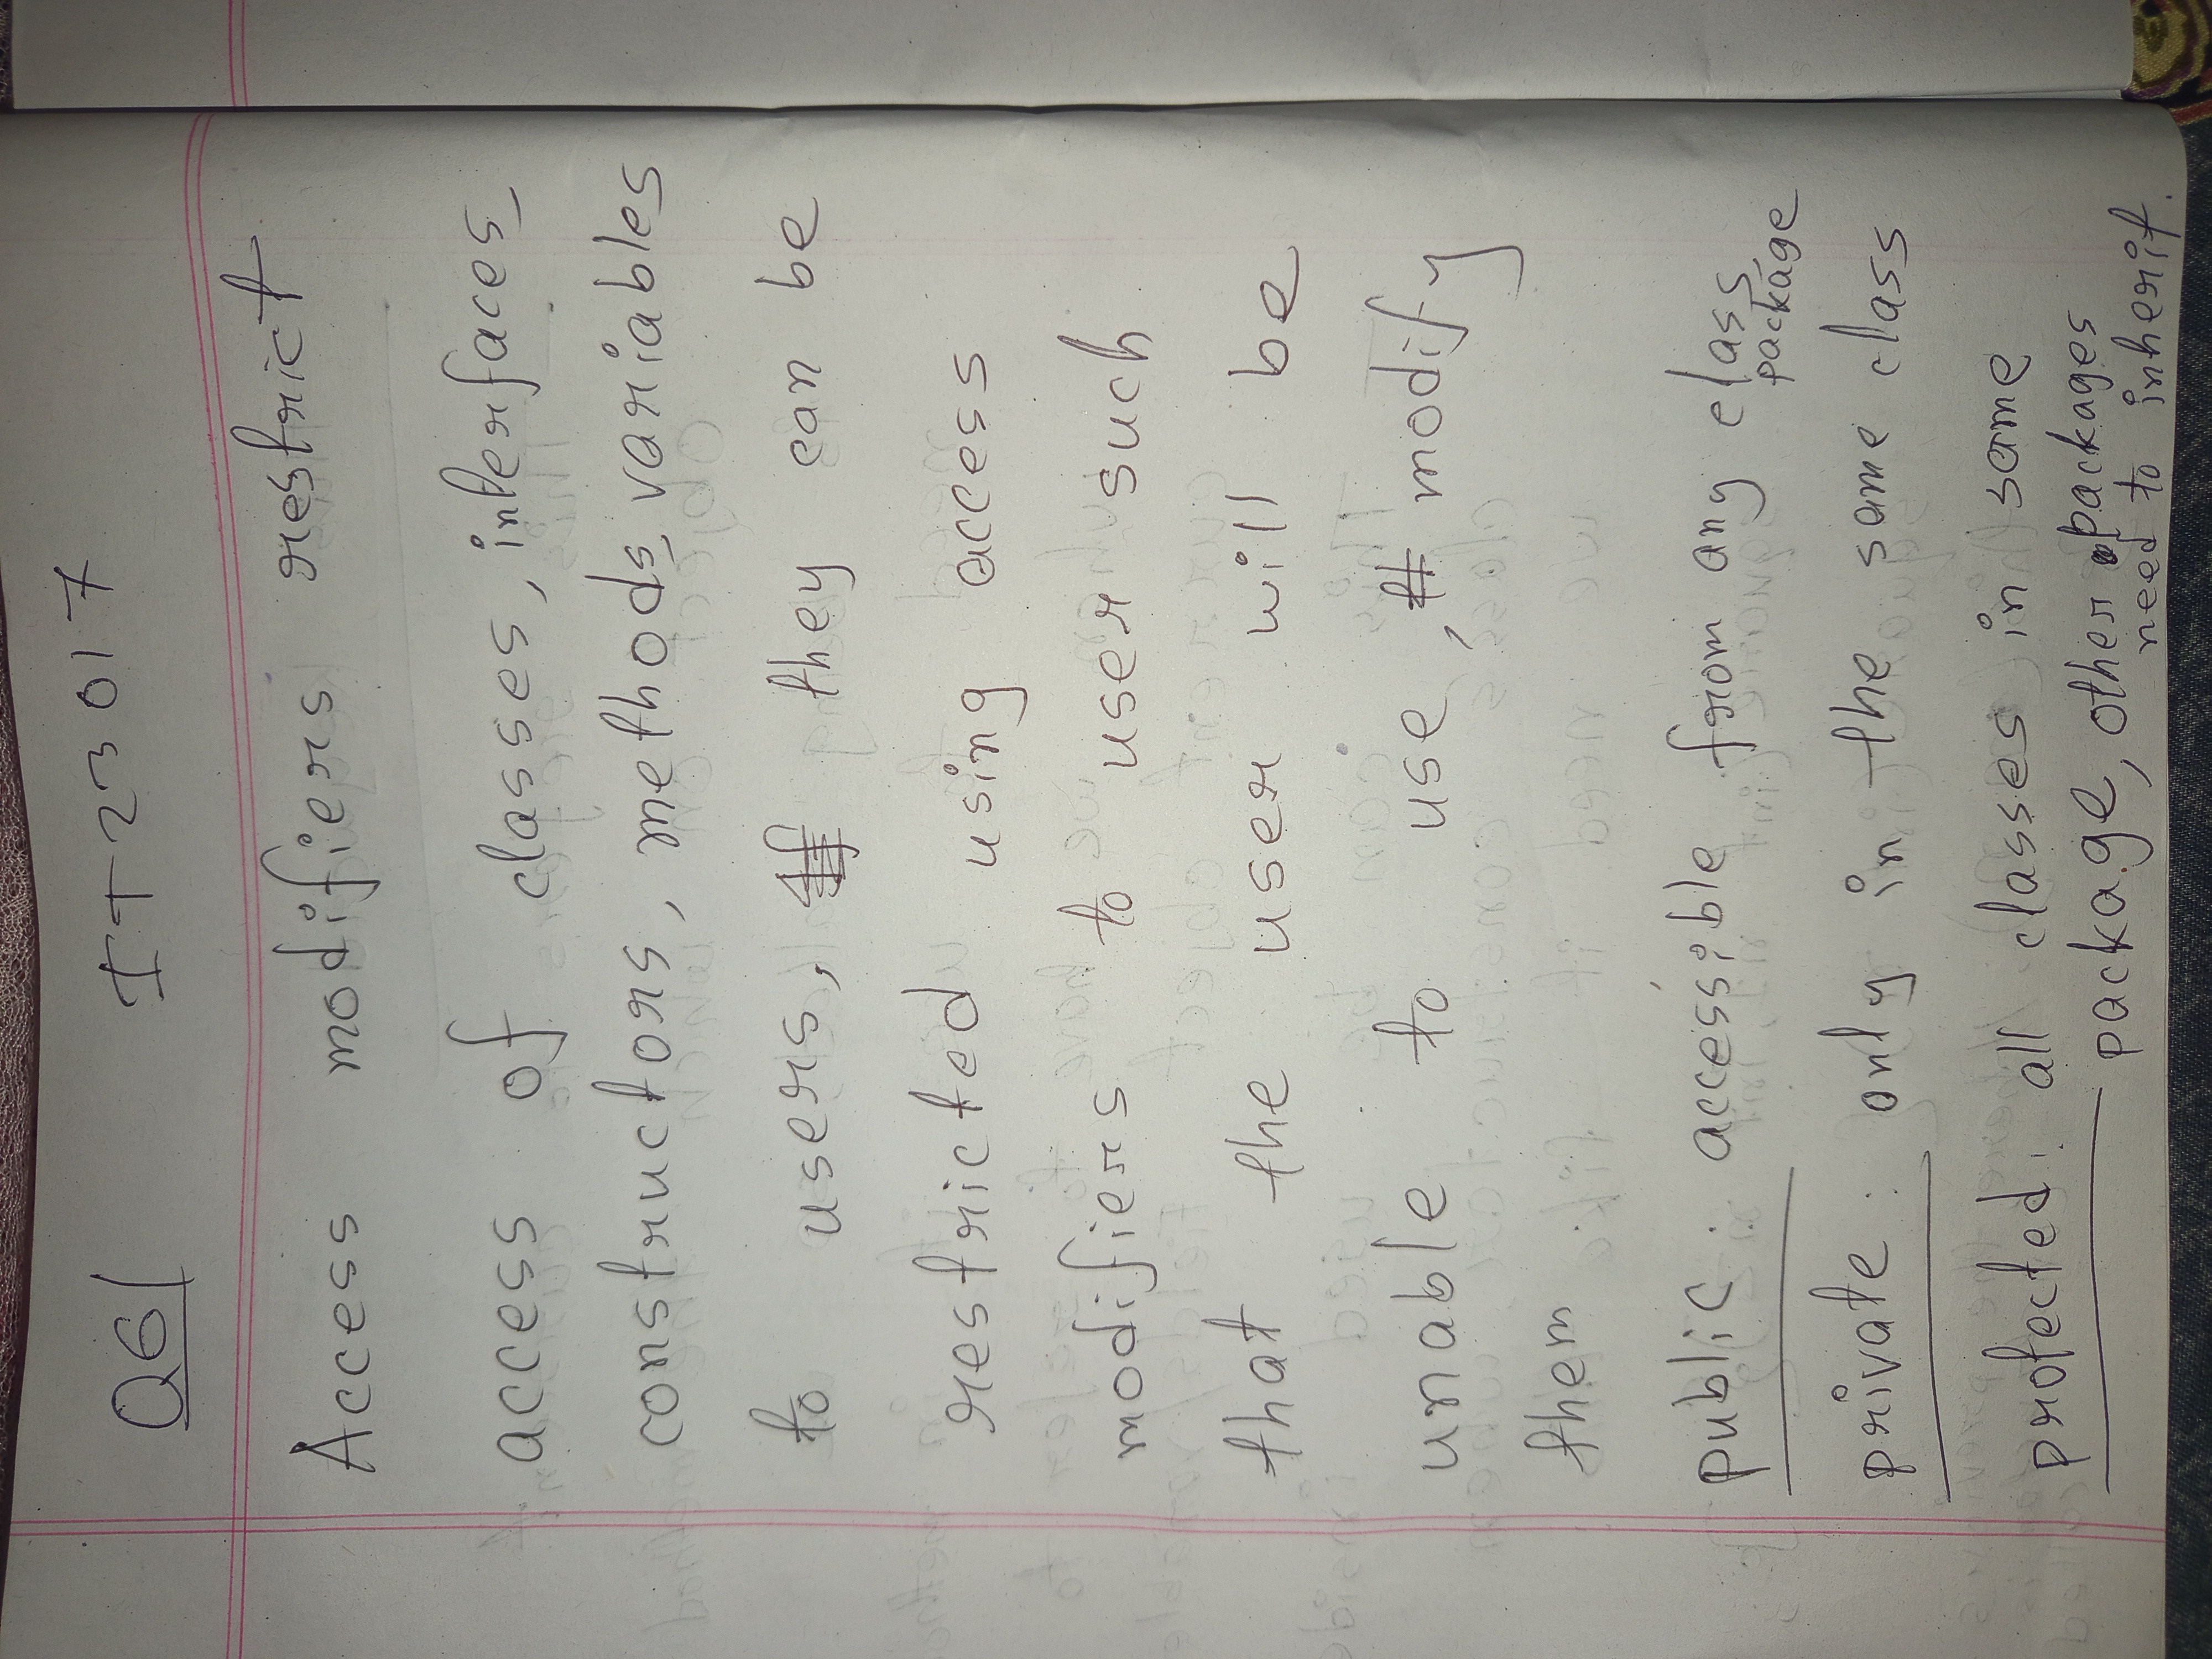 Q6/ IT23017
Access modifiers restrict
access of classes, interfaces,
constructors, methods, variables
to users, they can be
restricted using access
modifiers to user such
that the user will be
unable to use, modify
them
public : accessible from any class,
package
private : only in the same class
protected : all classes in same
package, other packages
need to inherit.